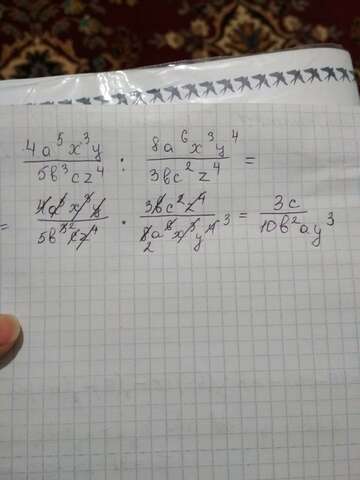 4a⁵x³y / 5b³cz⁴ : 8a⁶x³y⁴ / 3bc²z⁴ =
= 4a⁵x³y / 5b³cz⁴ · 3bc²z⁴ / 8a⁶x³y⁴ = 3c / 10b²ay³